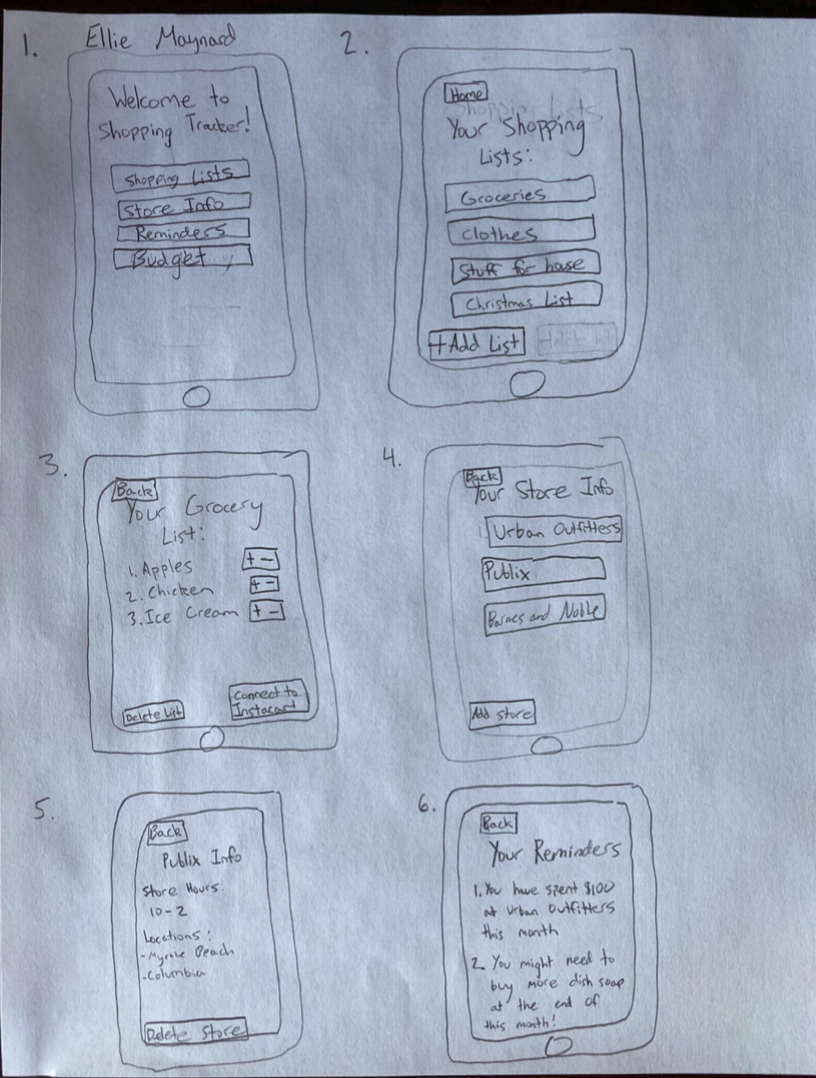 1. Ellie Maynard
Welcome to
Shopping Tracker!
Shopping Lists
Store Info
Reminders
Budget
2.
Home
Shopping Lists
Your Shopping
Lists:
Groceries
Clothes
Stuff for house
Christmas List
+Add List
3.
Back
Your Grocery
List:
1. Apples + -
2. Chicken + -
3. Ice Cream + -
Delete List
Connect to
Instacart
4.
Back
Your Store Info
Urban Outfitters
Publix
Barnes and Noble
Add store
5.
Back
Publix Info
Store Hours:
10-2
Locations:
-Myrtle Beach
-Columbia
Delete Store
6.
Back
Your Reminders
1. You have spent $100
at Urban Outfitters
this month
2. You might need to
buy more dish soap
at the end of
this month!